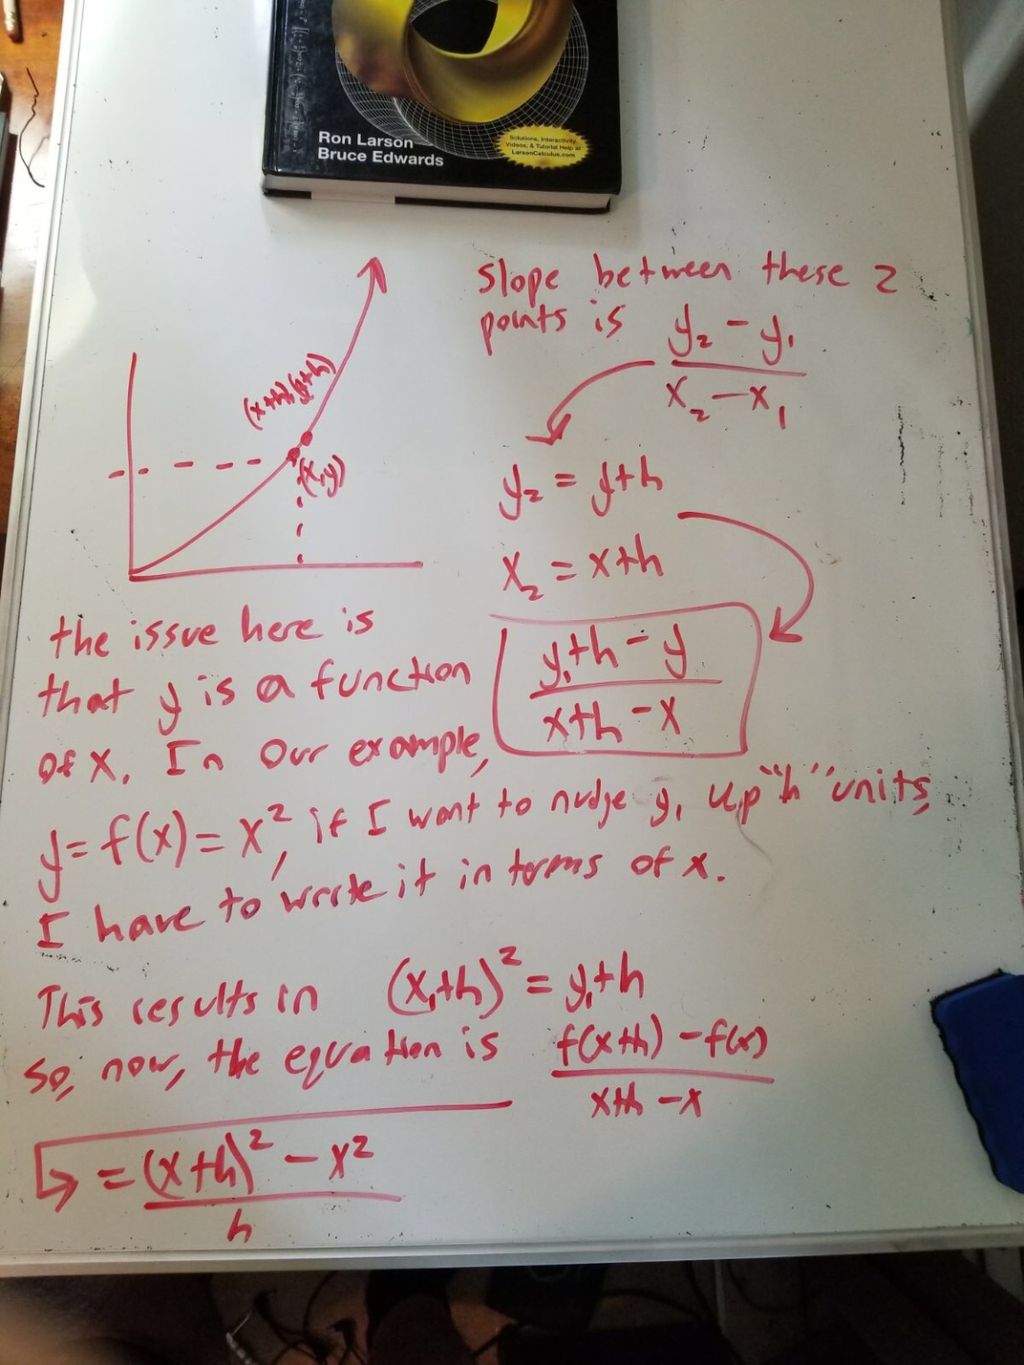 Ron Larson
Bruce Edwards
Solutions, Interactivity,
Videos, & Tutorial Help at
LarsonCalculus.com
Slope between these 2
points is y₂ - y₁
x₂ - x₁
(x+h),(y+h)
(x,y)
y₂ = y+h
x₂ = x+h
y₁+h - y
x+h - x
the issue here is
that y is a function
of x. In our example,
y = f(x) = x², if I want to nudge y₁ up "h" units,
I have to write it in terms of x.
This results in (x₁+h)² = y₁+h
So, now, the equation is f(x+h) - f(x)
x+h - x
= (x+h)² - x²
h